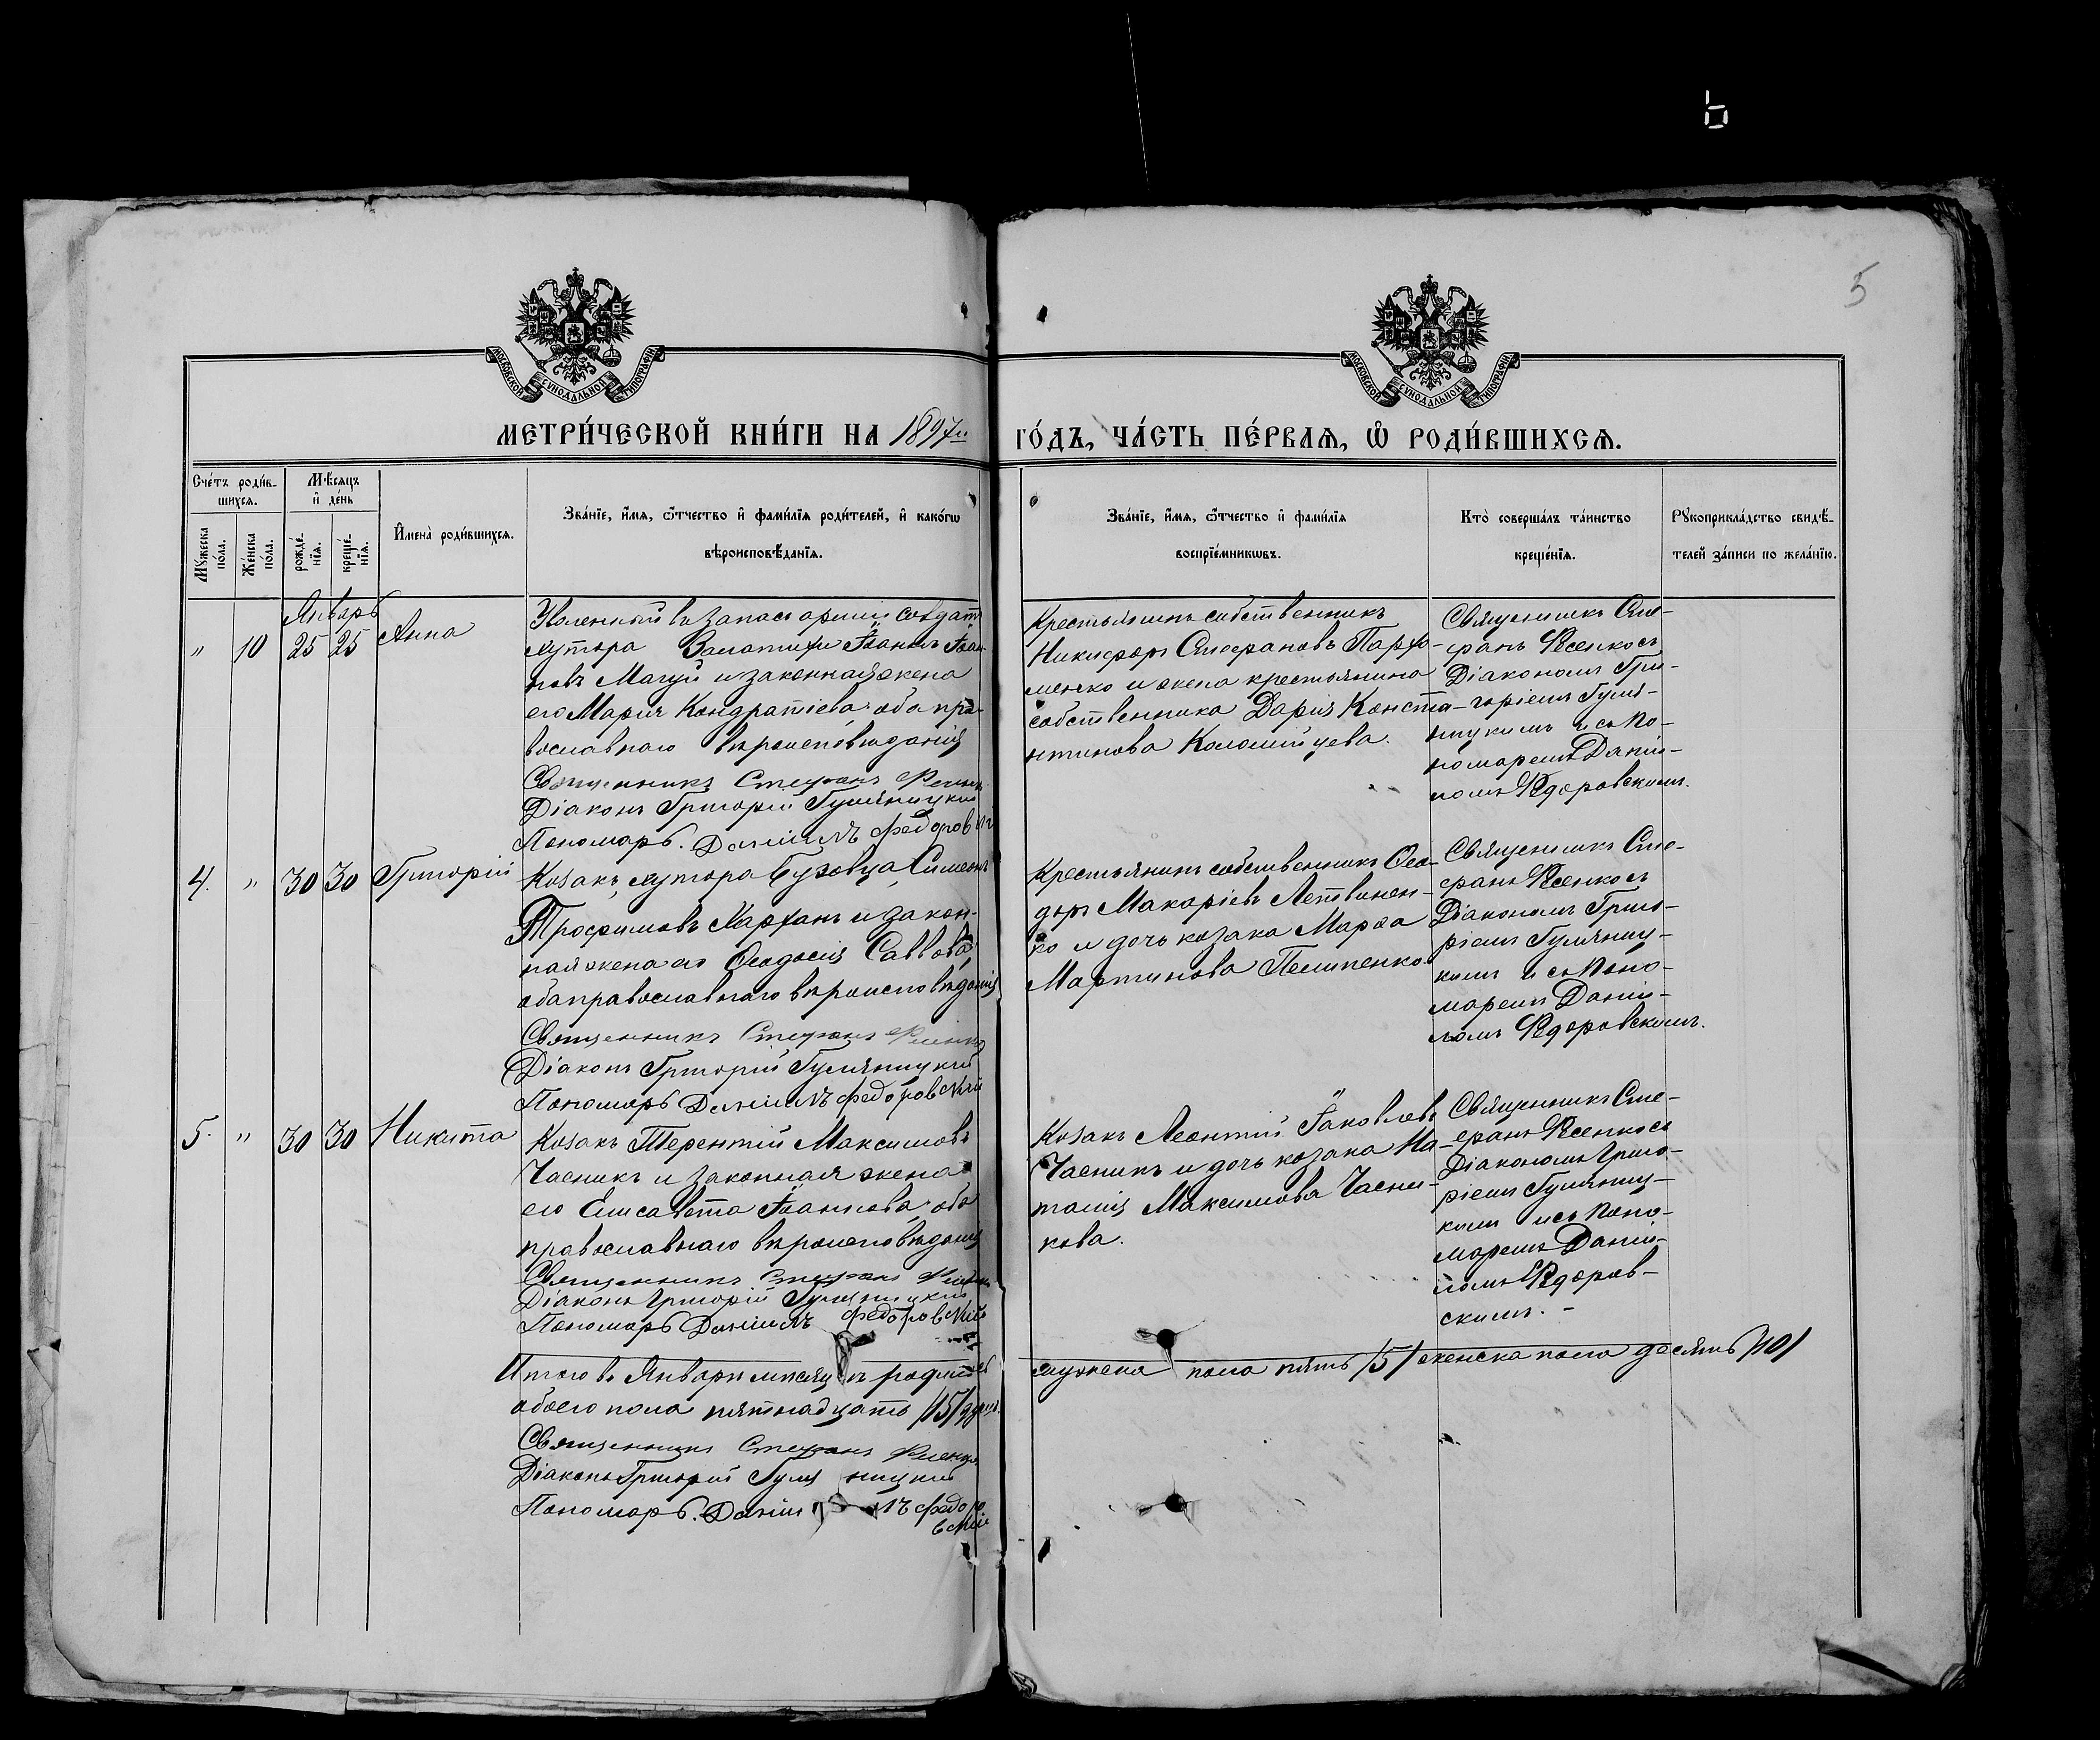 5
МОСКОВСКОЙ СУНОДАЛЬНОЙ ТИПОГРАФІИ
МОСКОВСКОЙ СУНОДАЛЬНОЙ ТИПОГРАФІИ
МЕТРИ́ЧЕСКОЙ КНИ́ГИ НА 1897й
ГО́ДЪ, ЧА́СТЬ ПЕ́РВАѦ, Ѡ РОДИ́ВШИХСѦ.
Сче́тъ роди́в-
шихсѧ.
Мꙋжеска по́ла.
Же́нска по́ла.
Мѣ́сѧцъ
и҆ де́нь
рожде́-
нїѧ.
креще́-
нїѧ.
И҆мена̀ роди́вшихсѧ.
Зва́нїе, и҆́мѧ, ѻ҆́тчество и҆ фами́лїѧ роди́телей, и҆ како́гѡ
вѣроисповѣ́данїѧ.
Зва́нїе, и҆́мѧ, ѻ҆́тчество и҆ фами́лїѧ
воспрїе́мникѡвъ.
Кто̀ соверша́лъ та́инство
креще́нїѧ.
Рꙋкоприкла́дство свидѣ́-
телей за́писи по жела́нїю.
Январь
" 10 25 25 Анна
Уволенный въ запасъ арміи солдатъ
хутора Іоаннъ Іоан-
новъ Мачуй и законная жена
его Марія Кондратіева, оба пра-
вославнаго вѣроисповѣданія
Священникъ Стефанъ Фесенко
Діаконъ Григорій Гуляницкій
Пономарь Даніилъ Федоровскій
Крестьянинъ собственникъ
Никифоръ Стефановъ Пархо-
менко и жена крестьянина
собственника Дарія Конста-
нтинова Коломійцева.
Священникъ Сте-
фанъ Фесенко съ
Діакономъ Гри-
горіемъ Гуля-
ницкимъ и съ По-
номаремъ Даніи-
ломъ Федоровскимъ.
4. " 30 30 Григорій
Козакъ хутора Бузовца, Симеонъ
Трофимовъ Харханъ и закон-
ная жена его Ѳеодосія Саввова,
оба православнаго вѣроисповѣданія
Священникъ Стефанъ Фесенко
Діаконъ Григорій Гуляницкій
Пономарь Даніилъ Федоровскій
Крестьянинъ собственникъ Ѳео-
доръ Макаріевъ Летвинен-
ко и дочь козака Марѳа
Мартинова Пелипенко
Священникъ Сте-
фанъ Фесенко съ
Діакономъ Григо-
ріемъ Гуляниц-
кимъ и съ Поно-
маремъ Даніи-
ломъ Федоровскимъ.
5. " 30 30 Никита
Козакъ Терентій Максимовъ
Часникъ и законная жена
его Елисавета Іоаннова, оба
православнаго вѣроисповѣданія
Священникъ Стефанъ Фесенко
Діаконъ Григорій Гуляницкій
Пономарь Даніилъ Федоровскій
Козакъ Леонтій Іаковлевъ
Часникъ и дочь козака На-
талія Максимова Часни-
кова.
Священникъ Сте-
фанъ Фесенко съ
Діакономъ Григо-
ріемъ Гуляниц-
кимъ и съ Поно-
маремъ Даніи-
ломъ Федоров-
скимъ.
Итого въ Январѣ мѣсяцѣ родилось
мужеска пола пять /5/ женска пола десять /10/
обоего пола пятнадцать /15/ душъ.
Священникъ Стефанъ Фесенко
Діаконъ Григорій Гуляницкій
Пономарь Даніилъ Федоро
вскій